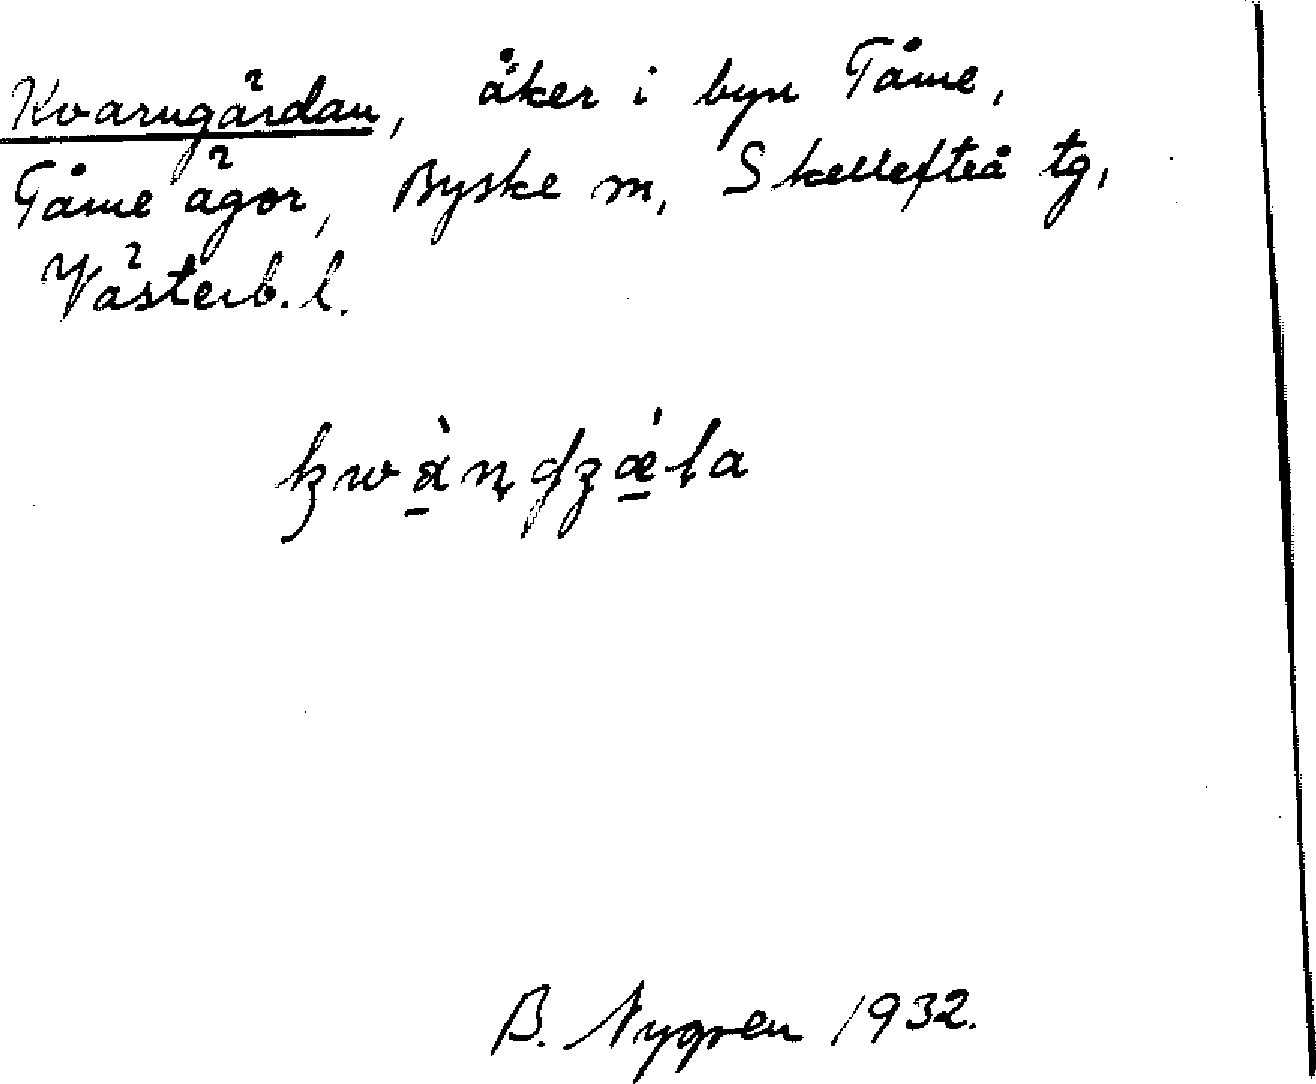 Kvarngärdan, åker i byn Tåme,
Tåme ägor, Byske sn, Skellefteå tg,
Västerb. l.
B. Nygren 1932.